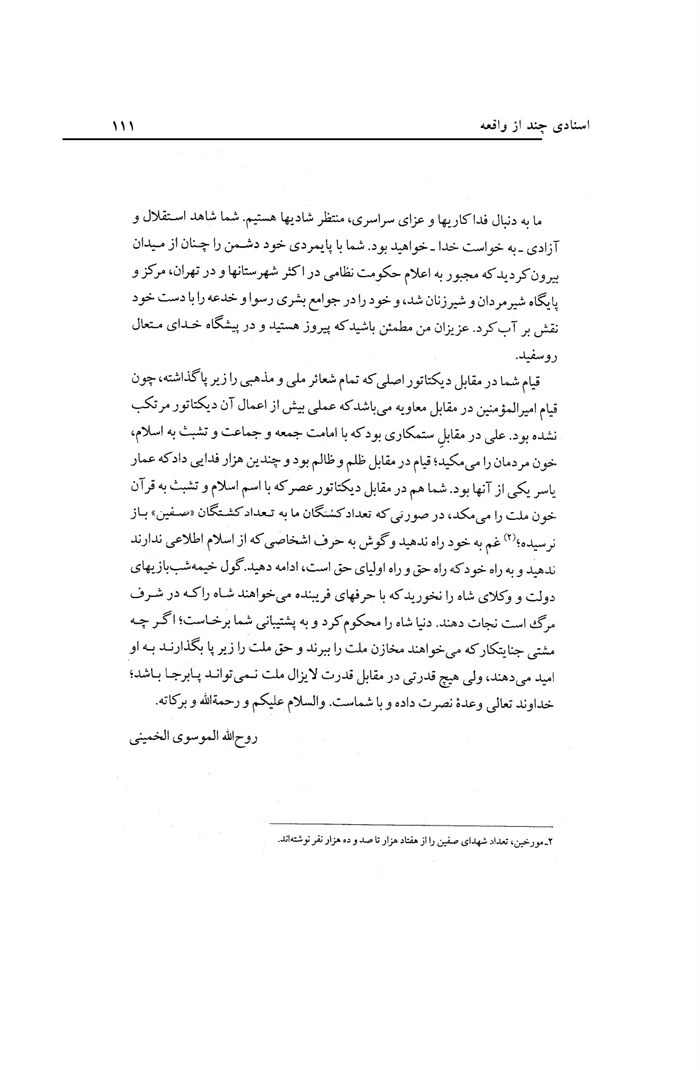 اسنادی چند از واقعه ۱۱۱
ما به دنبال فداکاریها و عزای سراسری، منتظر شادیها هستیم. شما شاهد استقلال و
آزادی ـ به خواست خدا ـ خواهید بود. شما با پایمردی خود دشمن را چنان از میدان
بیرون کردید که مجبور به اعلام حکومت نظامی در اکثر شهرستانها و در تهران، مرکز و
پایگاه شیرمردان و شیرزنان شد، و خود را در جوامع بشری رسوا و خدعه را با دست خود
نقش بر آب کرد. عزیزان من مطمئن باشید که پیروز هستید و در پیشگاه خدای متعال
روسفید.
قیام شما در مقابل دیکتاتور اصلی که تمام شعائر ملی و مذهبی را زیر پا گذاشته، چون
قیام امیرالمؤمنین در مقابل معاویه می‌باشد که عملی بیش از اعمال آن دیکتاتور مرتکب
نشده بود. علی در مقابلِ ستمکاری بود که با امامت جمعه و جماعت و تشبث به اسلام،
خون مردمان را می‌مکید؛ قیام در مقابل ظلم و ظالم بود و چندین هزار فدایی داد که عمار
یاسر یکی از آنها بود. شما هم در مقابل دیکتاتور عصر که با اسم اسلام و تشبث به قرآن
خون ملت را می‌مکد، در صورتی که تعداد کشتگان ما به تعداد کشتگان «صفین» باز
نرسیده؛(۲) غم به خود راه ندهید و گوش به حرف اشخاصی که از اسلام اطلاعی ندارند
ندهید و به راه خود که راه حق و راه اولیای حق است، ادامه دهید. گول خیمه‌شب‌بازیهای
دولت و وکلای شاه را نخورید که با حرفهای فریبنده می‌خواهند شاه را که در شرف
مرگ است نجات دهند. دنیا شاه را محکوم کرد و به پشتیبانی شما برخاست؛ اگر چه
مشتی جنایتکار که می‌خواهند مخازن ملت را ببرند و حق ملت را زیر پا بگذارند به او
امید می‌دهند، ولی هیچ قدرتی در مقابل قدرت لایزال ملت نمی‌تواند پابرجا باشد؛
خداوند تعالی وعدهٔ نصرت داده و با شماست. والسلام علیکم و رحمةالله و برکاته.
روح‌الله الموسوی الخمینی
۲ـ مورخین، تعداد شهدای صفین را از هفتاد هزار تا صد و ده هزار نفر نوشته‌اند.